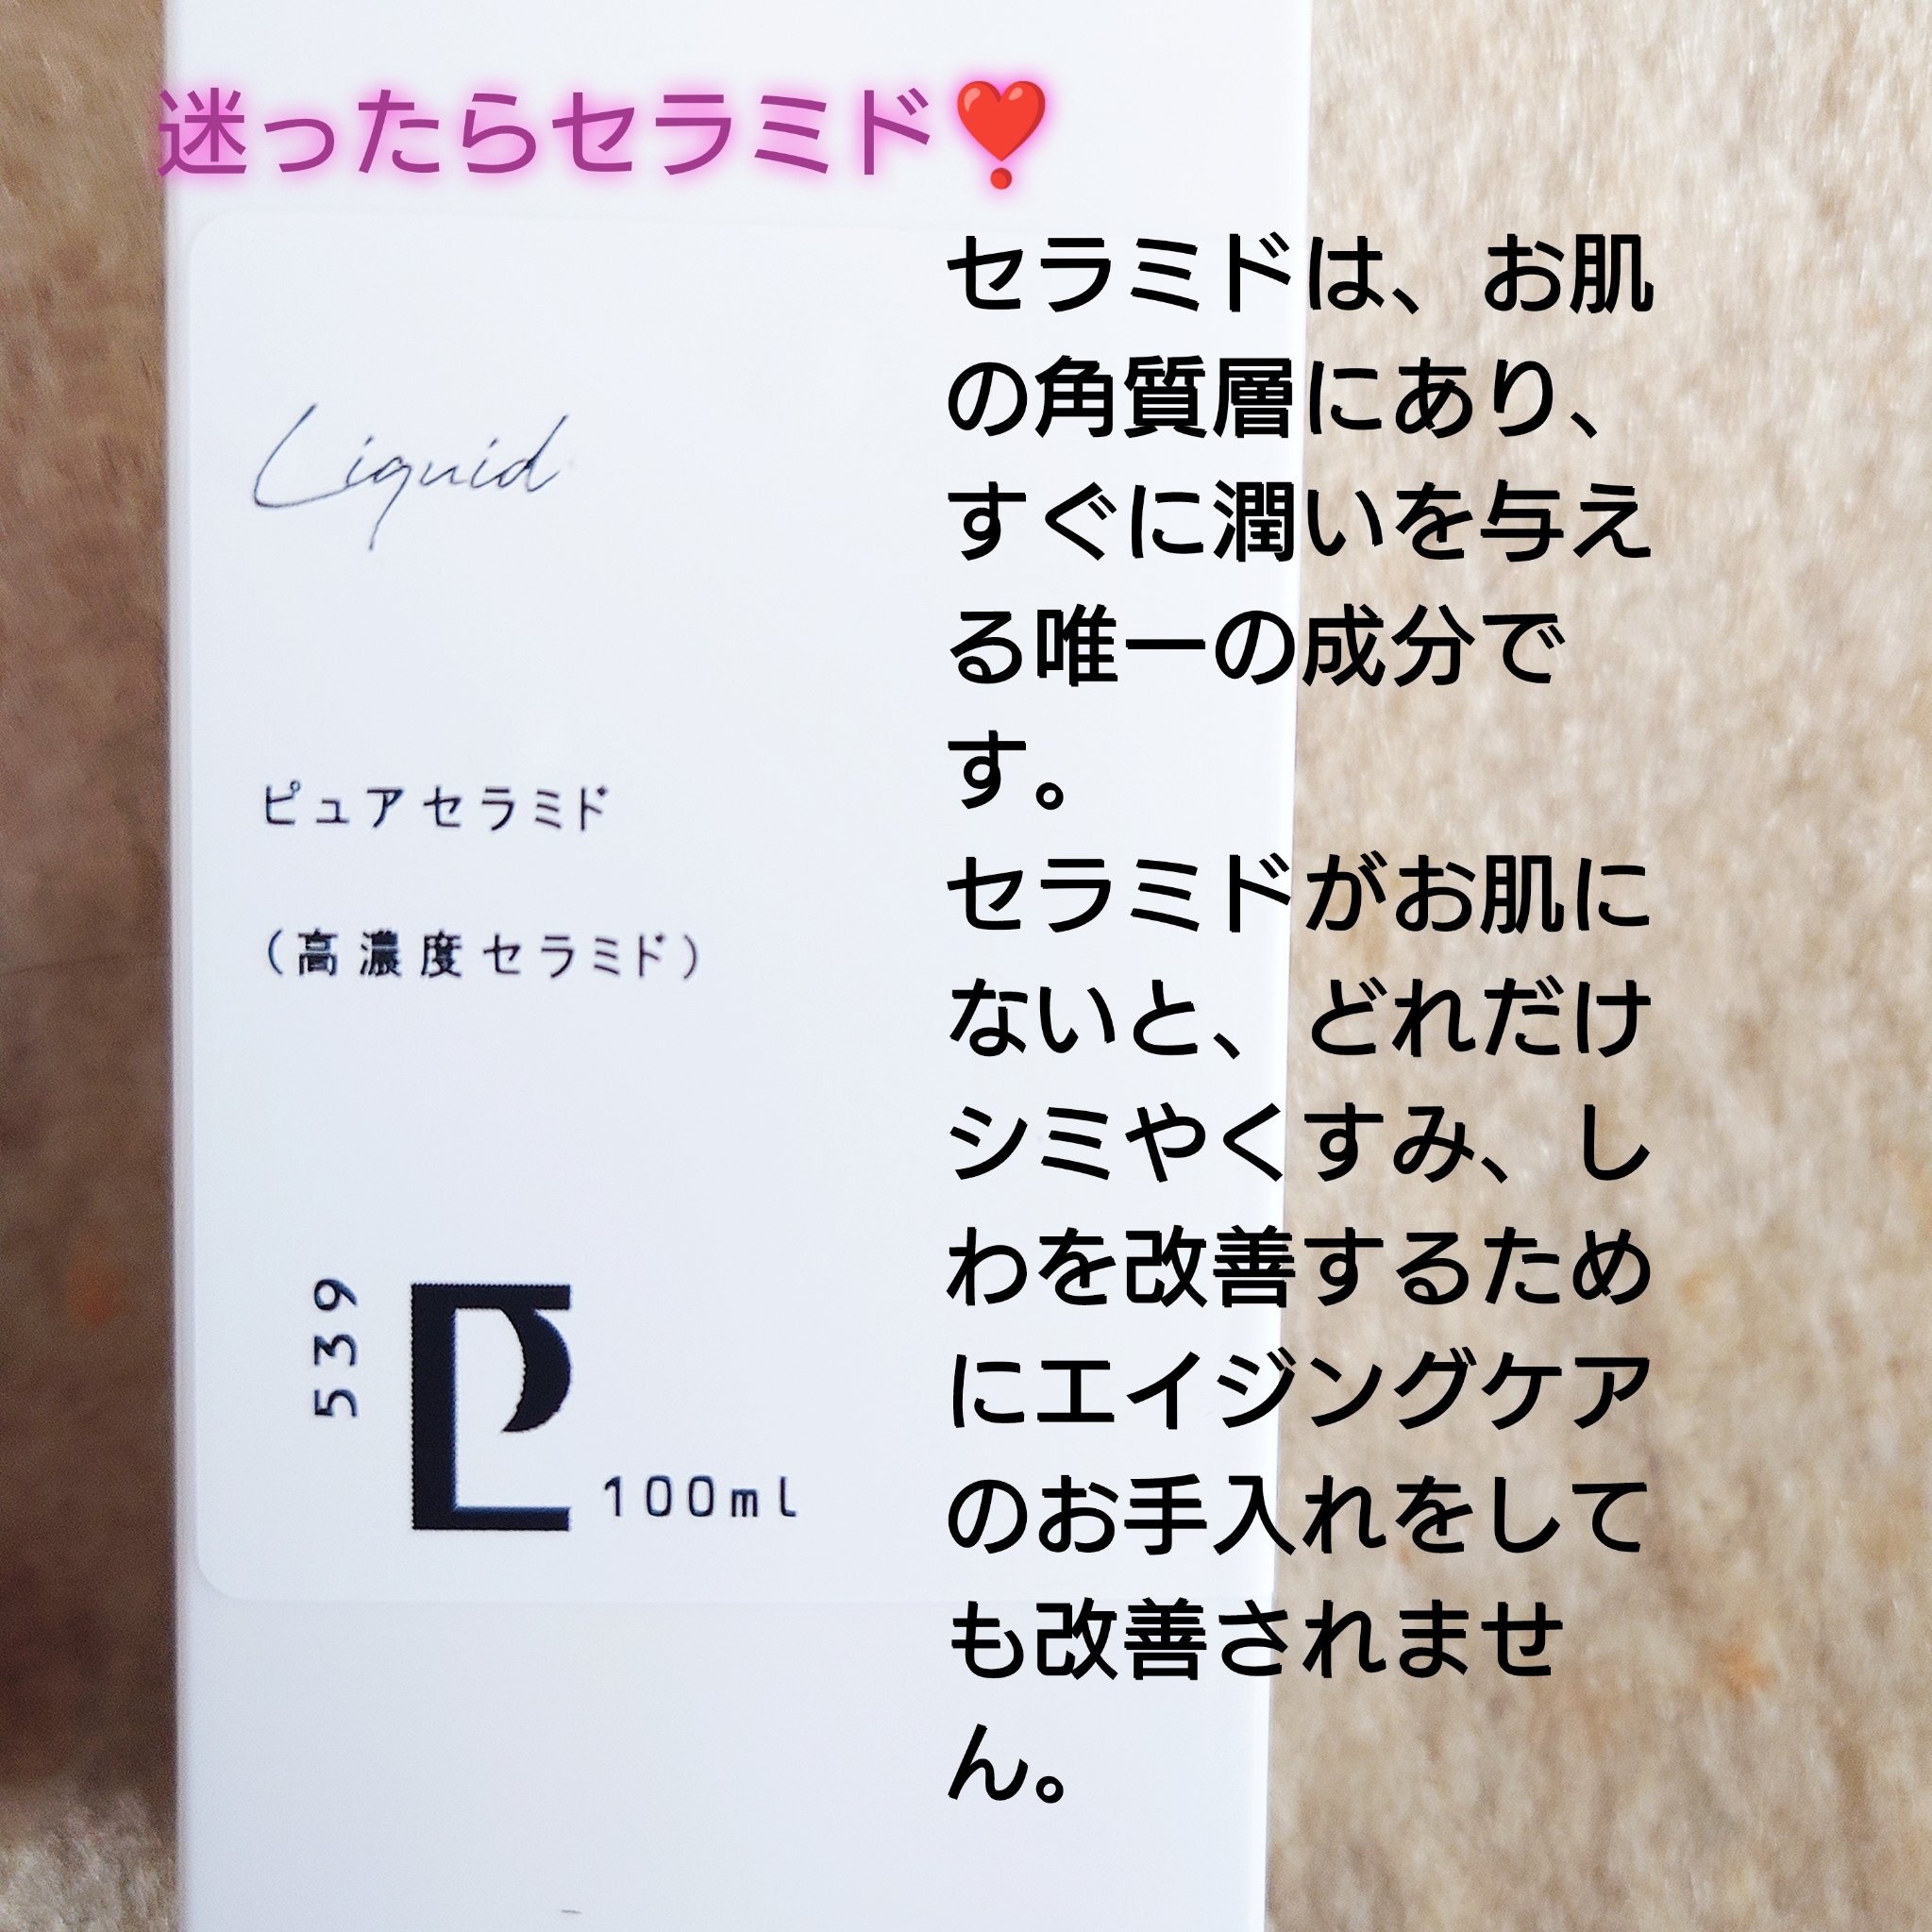 迷ったらセラミド❣️
Liquid
ピュアセラミド
（高濃度セラミド）
539
100ml
セラミドは、お肌
の角質層にあり、
すぐに潤いを与え
る唯一の成分で
す。
セラミドがお肌に
ないと、どれだけ
シミやくすみ、し
わを改善するため
にエイジングケア
のお手入れをして
も改善されませ
ん。